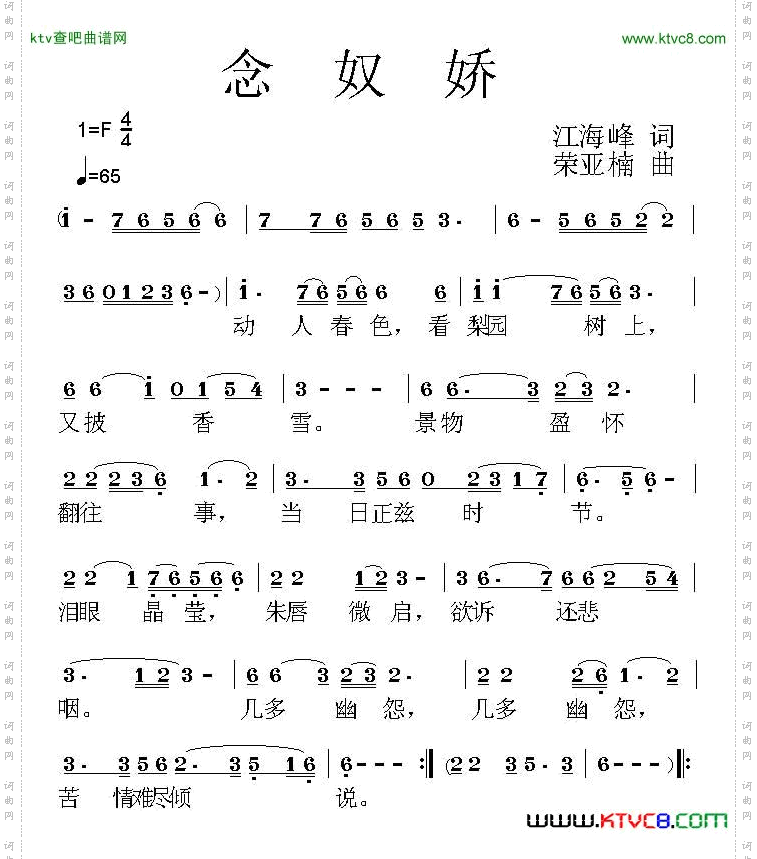 ktv查吧曲谱网
www.ktvc8.com
念奴娇
1=F 4/4
♩=65
江海峰 词
荣亚楠 曲
(1 - 7 6 5 6 6 | 7 7 7 6 5 6 5 3 · | 6 - 5 6 5 2 2 |
3 6 0 1 2 3 6 - ) | 1 · 7 6 5 6 6 6 | 1 1 7 6 5 3 · |
动 人 春 色, 看 梨园 树 上,
6 6 1 0 1 5 4 | 3 - - - | 6 6 · 3 2 3 2 · |
又披 香 雪。 景物 盈 怀
2 2 2 3 6 1 · 2 | 3 · 3 5 6 0 2 3 1 7 | 6 · 5 6 - |
翻往 事, 当 日正兹 时 节。
2 2 1 7 6 5 6 6 | 2 2 1 2 3 - | 3 6 · 7 6 6 2 5 4 |
泪眼 晶 莹, 朱唇 微 启, 欲诉 还悲
3 · 1 2 3 - | 6 6 3 2 3 2 · | 2 2 2 6 1 · 2 |
咽。 几多 幽 怨, 几多 幽 怨,
3 · 3 5 6 2 · 3 5 1 6 | 6 - - - :| (2 2 3 5 · 3 | 6 - - - ) :
苦 情难尽倾 说。
www.KTVC8.com
词曲网